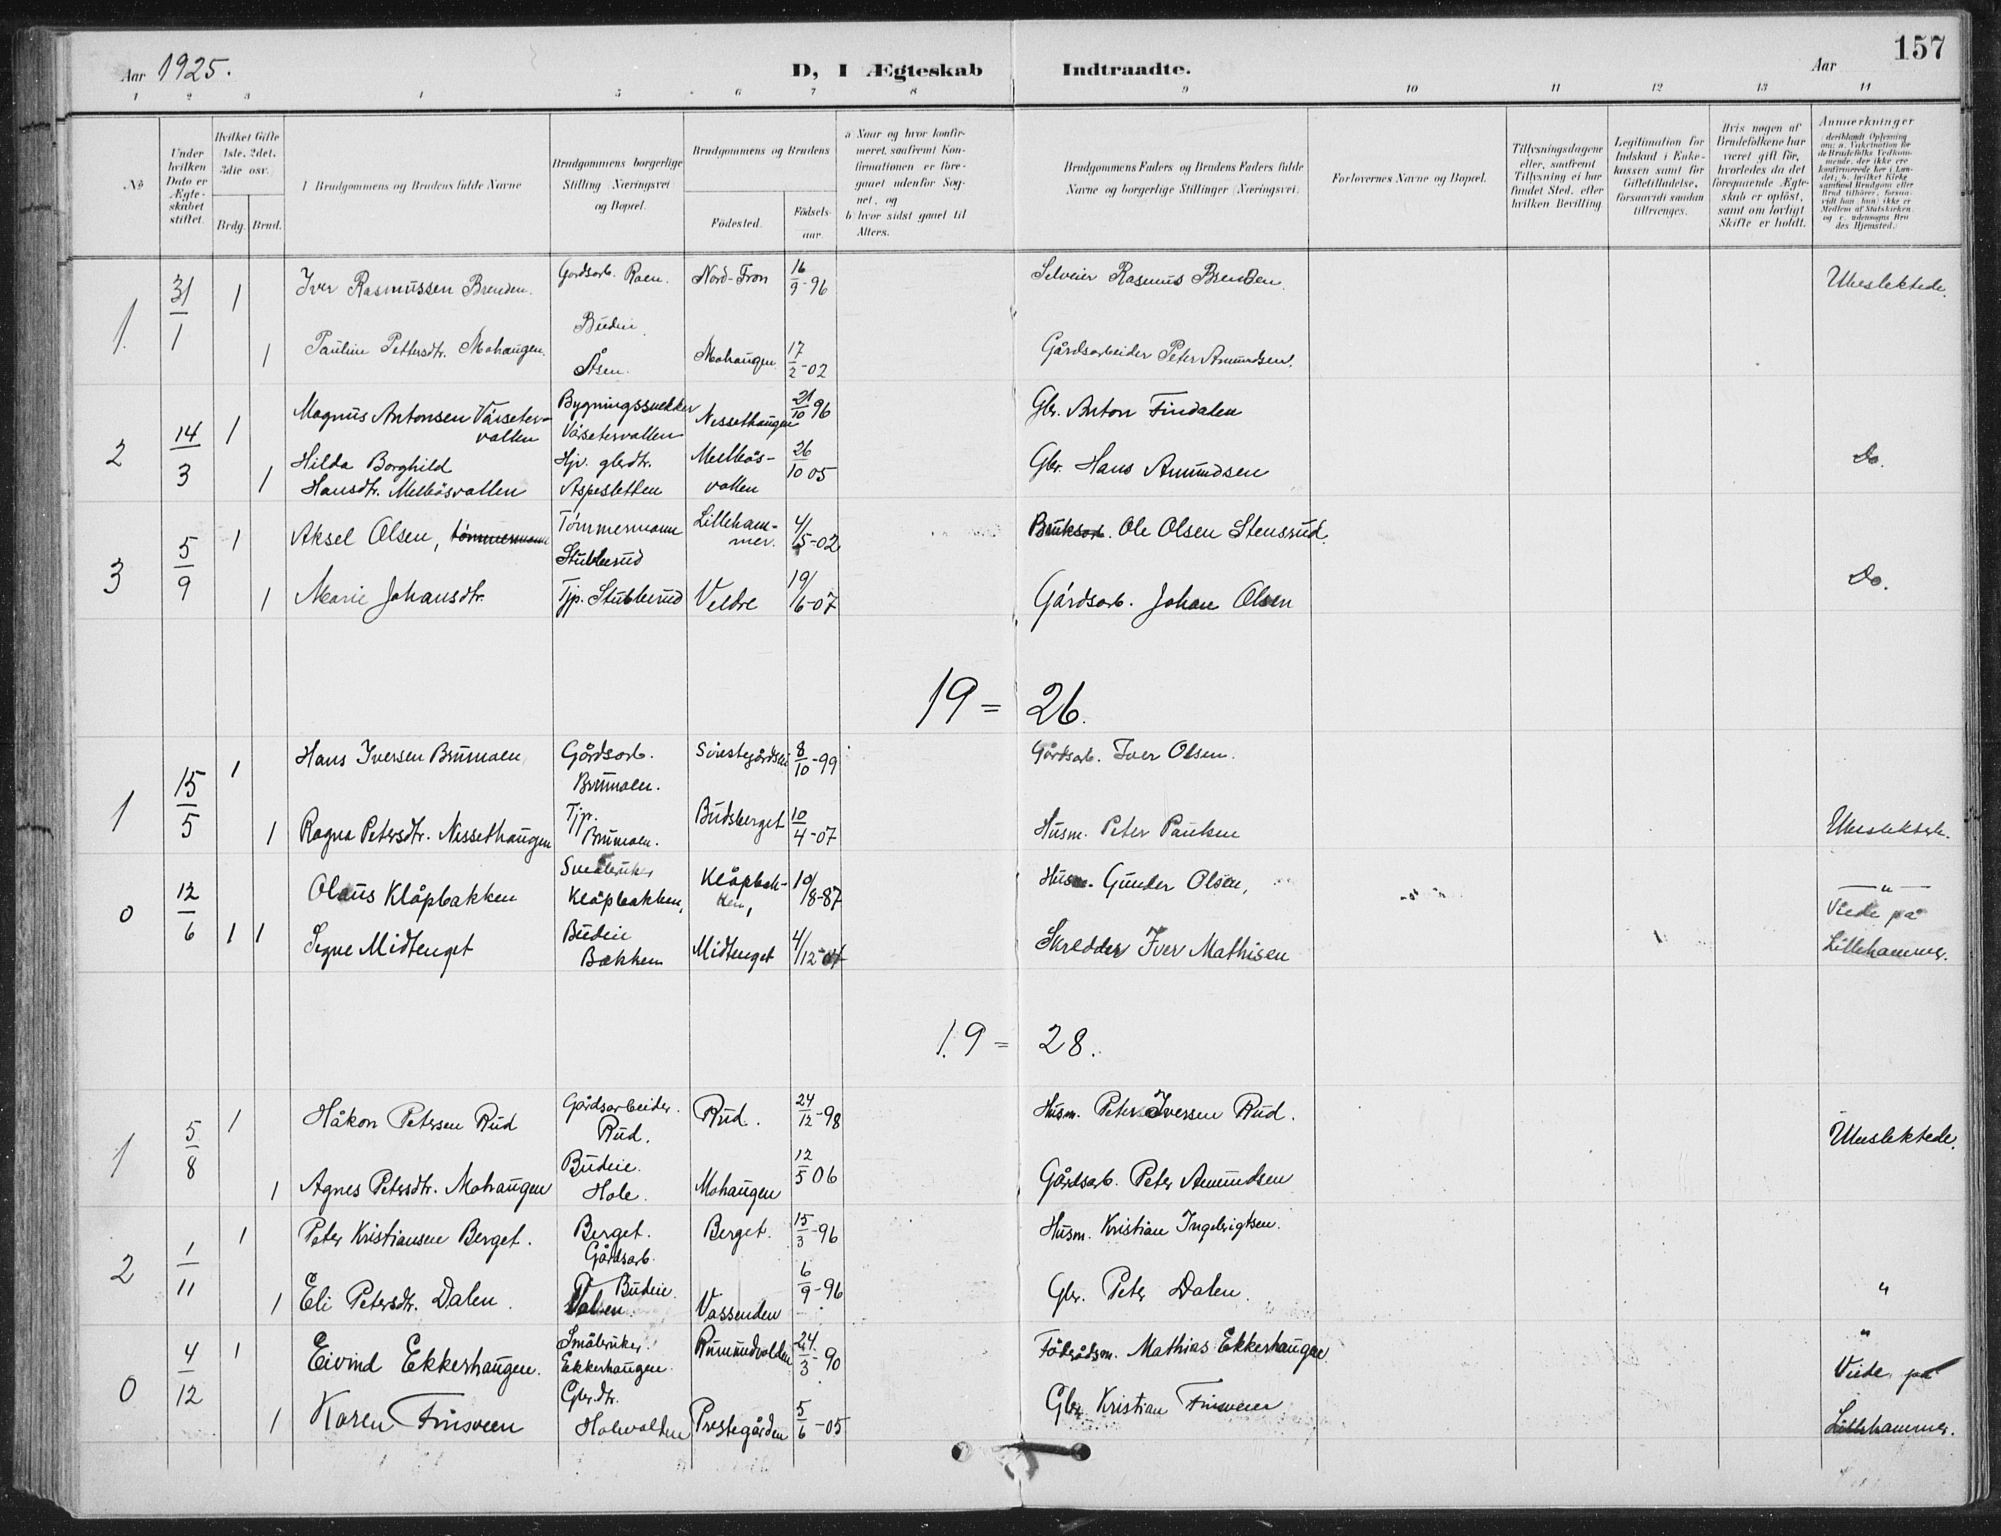 Aar 1925.
D, I Ægteskab Indtraadte.
Aar
157
1 2 3 4 5 6 7 8 9 10 11 12 13 14
№
Under hvilken Dato er Ægteskabet stiftet.
Hvilket Gifte (1ste, 2det, 3die osv.)
Brdg. Brud.
I Brudgommens og Brudens fulde Navne
Brudgommens borgerlige Stilling (Næringsvei) og Bopæl.
Brudgommens og Brudens
Fødested.
Fødselsaar.
a Naar og hvor konfirmeret, saafremt Konfirmationen er foregaaet udenfor Sognet, og
b hvor sidst gaaet til Alters.
Brudgommens Faders og Brudens Faders fulde Navne og borgerlige Stillinger (Næringsvei).
Forlovernes Navne og Bopæl.
Tillysningsdagene eller, saafremt Tillysning ei har fundet Sted, efter hvilken Bevilling
Legitimation for Indskud i Enkekassen samt for Giftetilladelse, forsaavidt saadan tiltrænges.
Hvis nogen af Brudefolkene har været gift før, hvorledes da det foregaaende Ægteskab er opløst, samt om lovligt Skifte er holdt.
Anmærkninger
1 31/1 1 Iver Rasmussen Brenden. Gårdsarb. Roen. Nord-Fron 16/9-96 Selveier Rasmus Brenden. Ubeslektede.
1 Pauline Pettersdtr. Mohaugen. Budeie Åsen. Mohaugen 17/2-02 Gårdsarbeider Peter Amundsen.
2 14/3 1 Magnus Antonsen Vårsetervollen Bygningssnekker Vårsetervollen Nessethaugen 21/10 96 Gbr. Anton Findalen
1 Hilda Borghild Hansdtr. Melbösvollen Hjv. gbrdtr. Aspesletten Melbösvollen 26/10 05 Gbr. Hans Amundsen Do.
3 5/9 1 Aksel Olsen, tømmermann Tömmermann Stubberud Lillehammer. 4/5-02 Bruksarb. Ole Olsen Stensrud.
1 Marie Johansdtr. Tjp. Stubberud Veldre 19/6-07 Gårdsarb. Johan Olsen Do.
19 = 26.
1 15/5 1 Hans Iversen Brumoen Gårdsarb. Brumoen. 8/10-99 Gårdsarb. Iver Olsen.
1 Ragna Petersdtr. Nessethaugen Tjp. Brumoen. Budsberget 10/4-07 Husm. Peter Paulsen
0 12/6 1 Olaus Klåpbakken Klåpbakken, Klåpbakken, 10/8-87 Husm. Gunder Olsen, — " —
1 Signe Midtenget Budeie Bakken Midtenget 4/12-07 Skredder Iver Mathisen Viede på Lillehammer.
19 = 28.
1 5/8 1 Håkon Petersen Rud Gårdsarbeider. Rud. Rud. 24/12-98 Husm. Peter Iversen Rud. Ubeslektede.
1 Agnes Petersdtr. Mohaugen Budeie. Hole. Mohaugen 12/5 06 Gårdsarb. Peter Amundsen
2 1/11 1 Peter Kristiansen Berget. Berget. Gårdsarb. Berget. 15/3-96 Husm. Kristian Ingebrigtsen.
1 Eli Petersdtr. Dalen. Budeie. Dalen Vassenden 6/9-96 Gbr. Peter Dalen. "
0 4/12 1 Eivind Ekkerhaugen. Småbruker Ekkerhaugen. Rumundvolden 24/3-90 Föderådsm. Mathias Ekkerhaugen "
1 Karen Finsveen Gbr.dtr. Holevolden Prestegården 5/6-05 Gbr Kristian Finsveen Viede på Lillehammer.